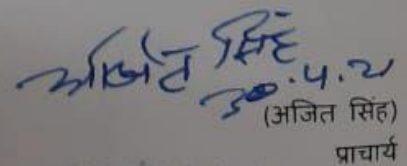 अजित सिंह
30.4.21
(अजित सिंह)
प्राचार्य